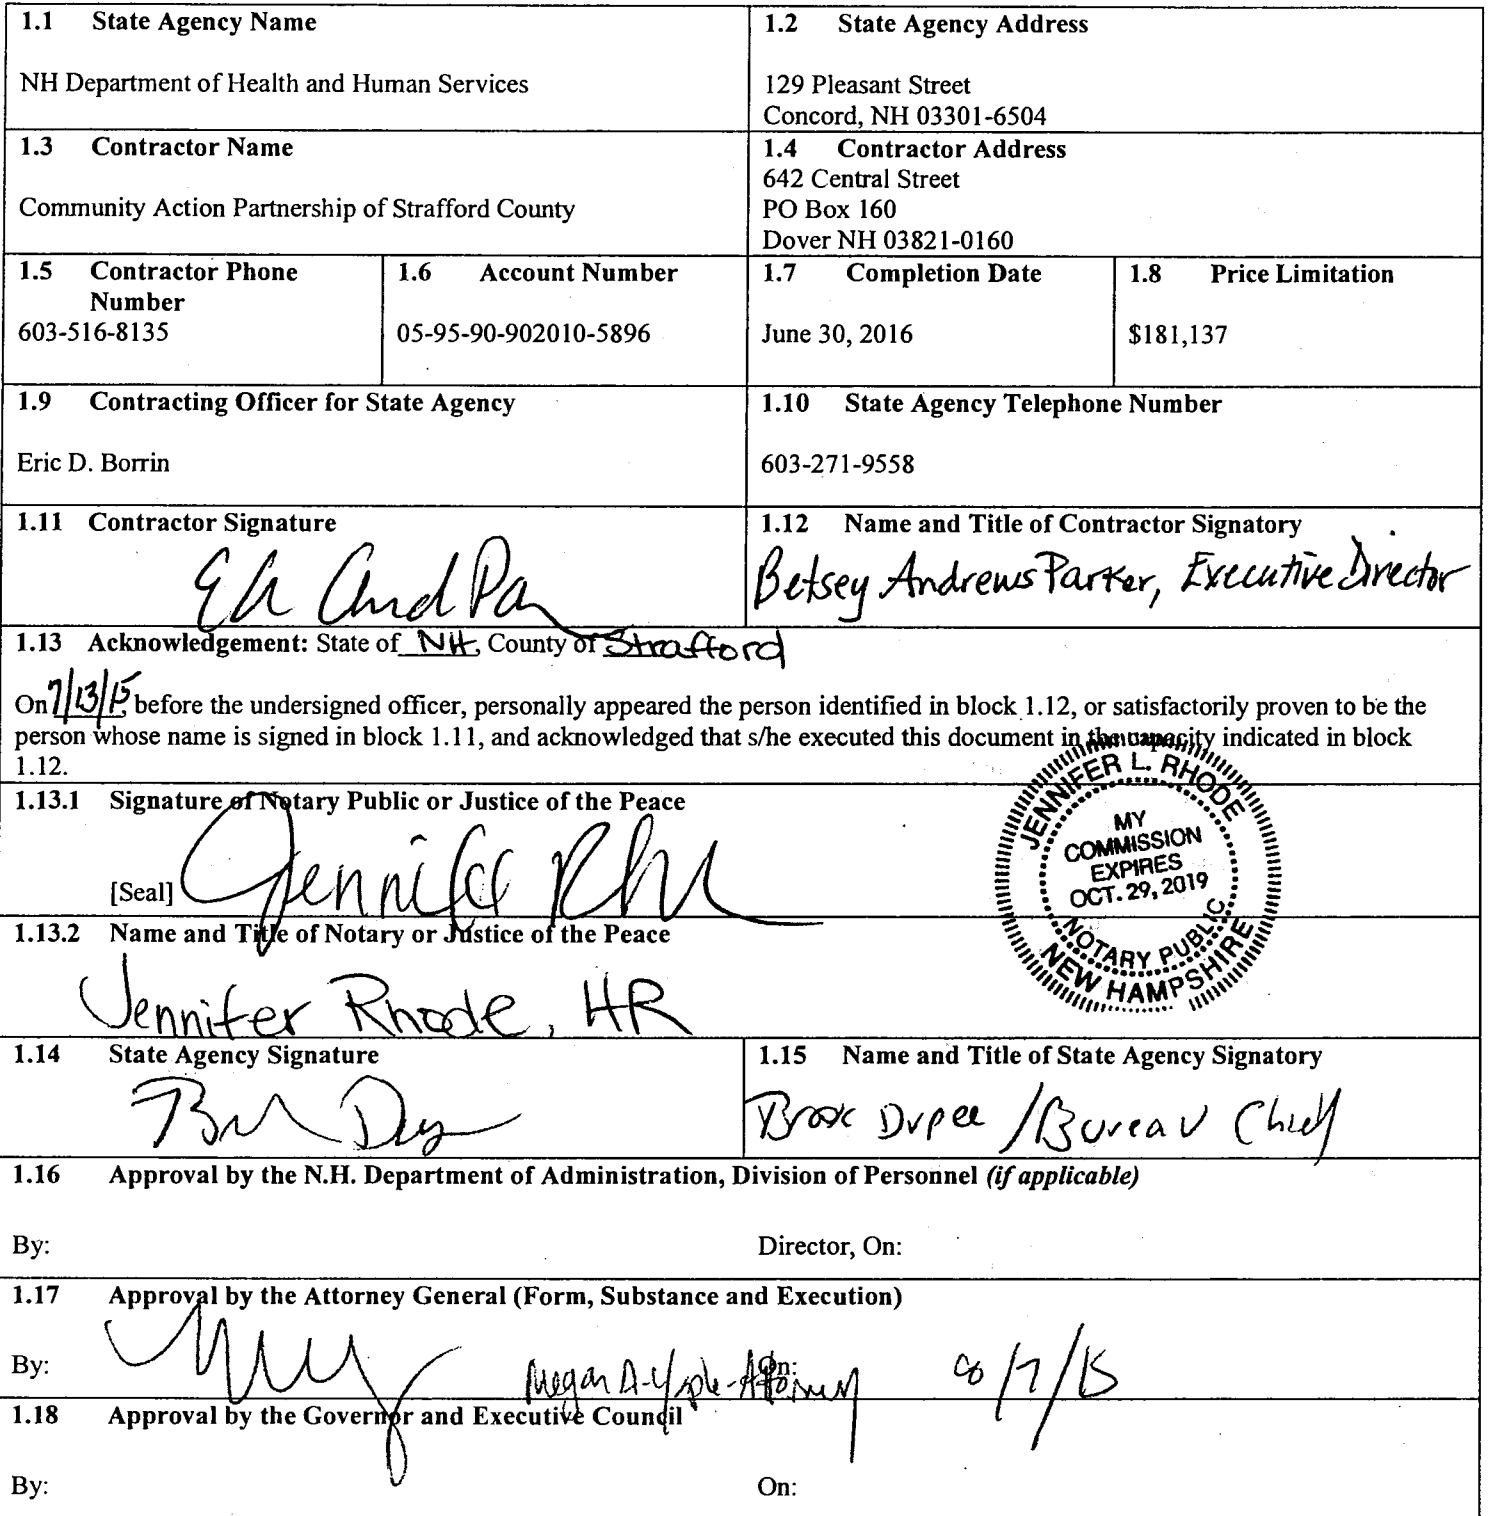 1.1 State Agency Name
NH Department of Health and Human Services
1.2 State Agency Address
129 Pleasant Street
Concord, NH 03301-6504
1.3 Contractor Name
Community Action Partnership of Strafford County
1.4 Contractor Address
642 Central Street
PO Box 160
Dover NH 03821-0160
1.5 Contractor Phone
Number
603-516-8135
1.6 Account Number
05-95-90-902010-5896
1.7 Completion Date
June 30, 2016
1.8 Price Limitation
$181,137
1.9 Contracting Officer for State Agency
Eric D. Borrin
1.10 State Agency Telephone Number
603-271-9558
1.11 Contractor Signature
1.12 Name and Title of Contractor Signatory
Betsey Andrews Parker, Executive Director
1.13 Acknowledgement: State of NH, County of Strafford
On 7/13/15, before the undersigned officer, personally appeared the person identified in block 1.12, or satisfactorily proven to be the
person whose name is signed in block 1.11, and acknowledged that s/he executed this document in the capacity indicated in block
1.12.
1.13.1 Signature of Notary Public or Justice of the Peace
[Seal]
JENNIFER L. RHODE
MY
COMMISSION
EXPIRES
OCT. 29, 2019
NOTARY PUBLIC
NEW HAMPSHIRE
1.13.2 Name and Title of Notary or Justice of the Peace
Jennifer Rhode, HR
1.14 State Agency Signature
1.15 Name and Title of State Agency Signatory
Brook Dupee / Bureau Chief
1.16 Approval by the N.H. Department of Administration, Division of Personnel (if applicable)
By: Director, On:
1.17 Approval by the Attorney General (Form, Substance and Execution)
By: Megan A. Yaple - Attorney On: 8/7/15
1.18 Approval by the Governor and Executive Council
By: On: